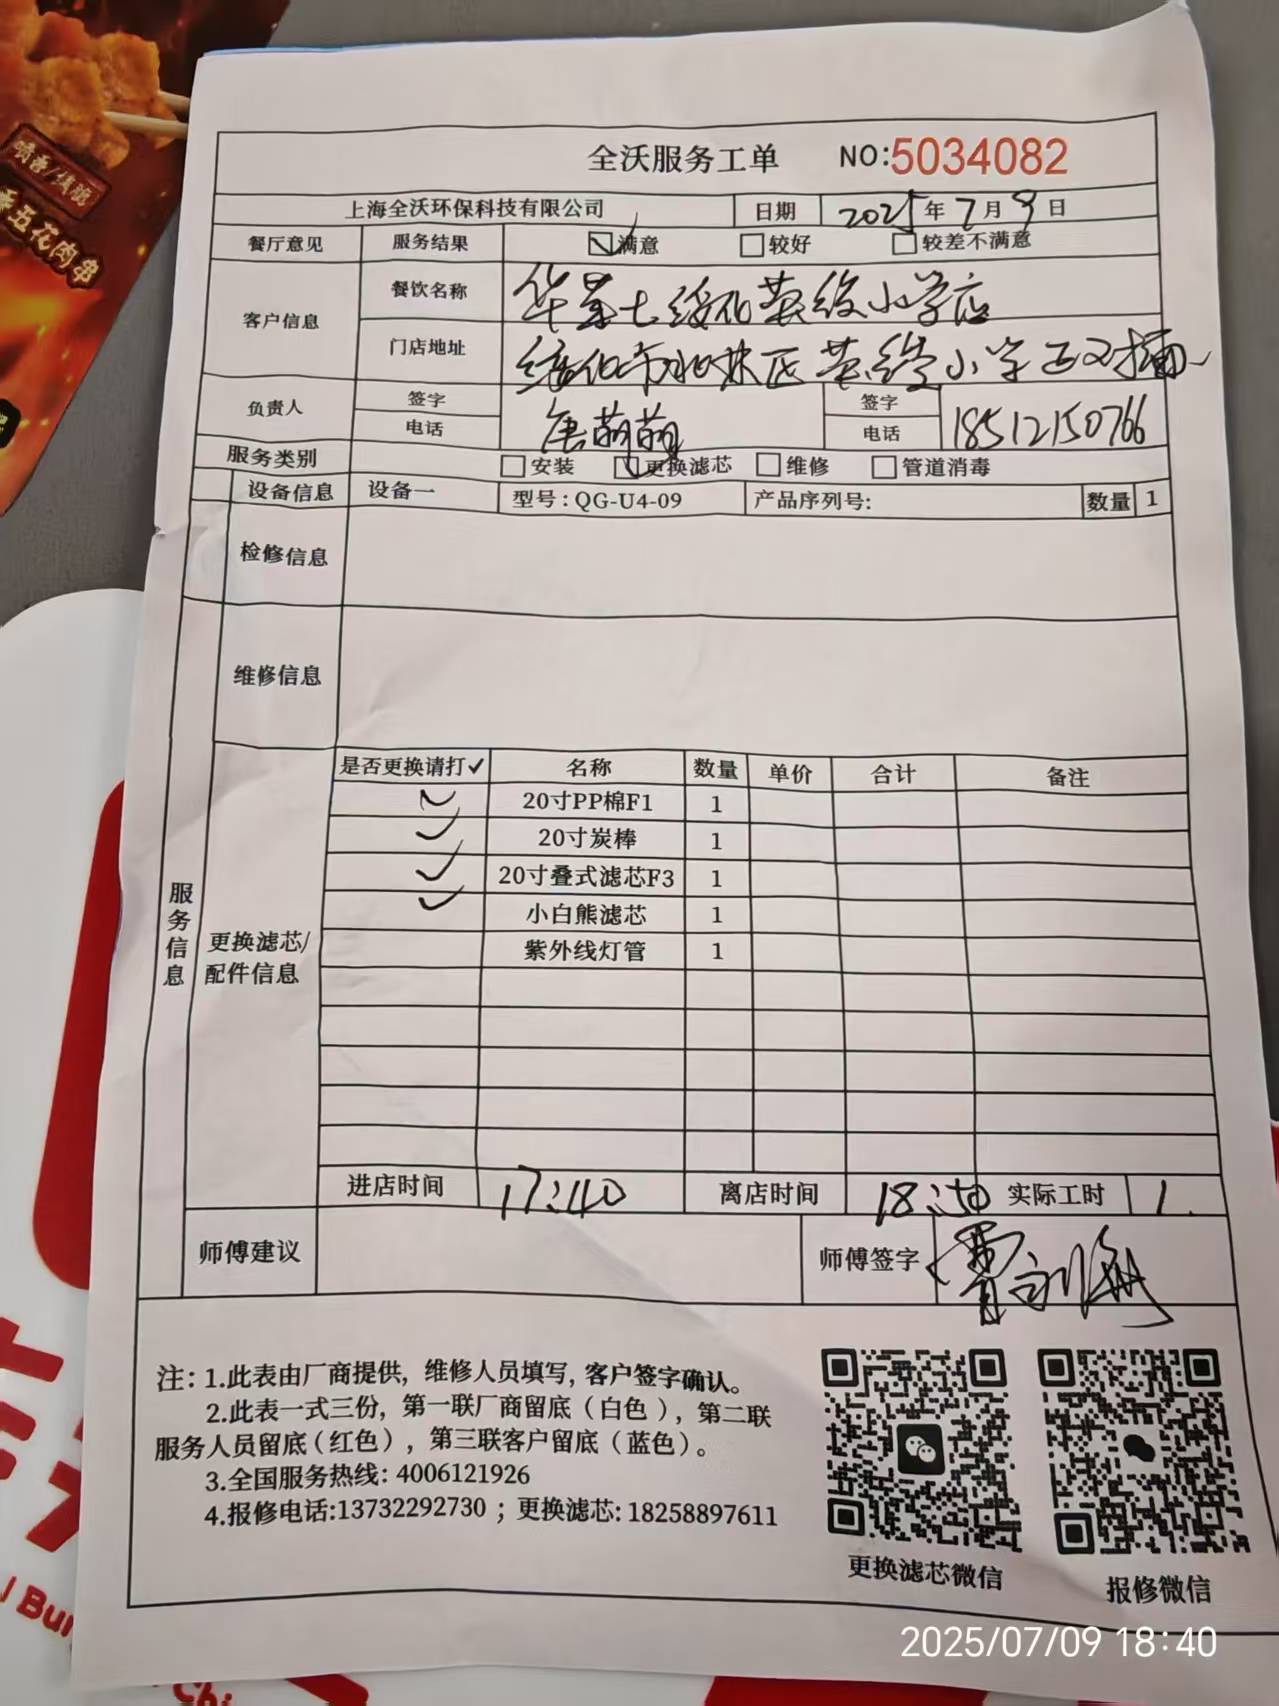 喷香/焦脆
五花肉串
全沃服务工单 NO:5034082
上海全沃环保科技有限公司 日期 2025年7月9日
餐厅意见 服务结果 ☑满意 □较好 □较差不满意
客户信息 餐饮名称 华莱士绥化英俊小学店
门店地址 绥化市北林区英俊小学正对面
负责人 签字 唐萌萌 签字
电话 电话 18512150766
服务类别 □安装 ☑更换滤芯 □维修 □管道消毒
设备信息 设备一 型号:QG-U4-09 产品序列号: 数量 1
检修信息
维修信息
服务信息
更换滤芯/
配件信息
是否更换请打✓ 名称 数量 单价 合计 备注
✓ 20寸PP棉F1 1
✓ 20寸炭棒 1
✓ 20寸叠式滤芯F3 1
✓ 小白熊滤芯 1
紫外线灯管 1
进店时间 17:40 离店时间 18:50 实际工时 1
师傅建议 师傅签字
注: 1.此表由厂商提供, 维修人员填写, 客户签字确认。
2.此表一式三份, 第一联厂商留底(白色), 第二联
服务人员留底(红色), 第三联客户留底(蓝色)。
3.全国服务热线: 4006121926
4.报修电话:13732292730 ; 更换滤芯: 18258897611
更换滤芯微信 报修微信
2025/07/09 18:40